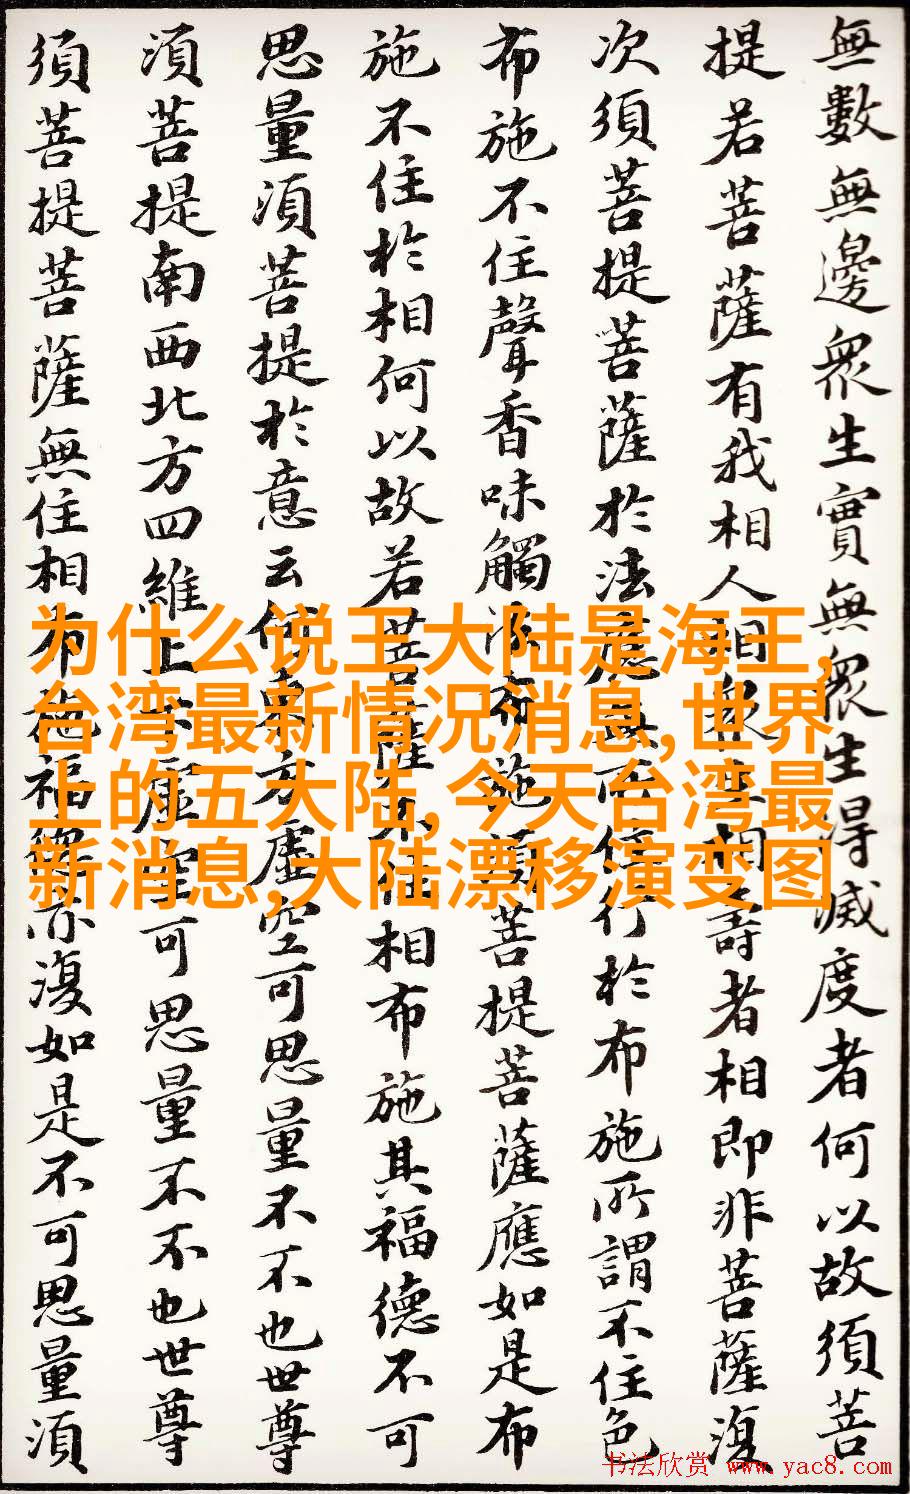 無數無邊衆生實無衆生得滅度者何以故須菩
提若菩薩有我相人相衆生相壽者相即非菩薩復
次須菩提菩薩於法應無所住行於布施所謂不住色
布施不住聲香味觸法布施須菩提菩薩應如是布
施不住於相何以故若菩薩不住相布施其福德不可
思量須菩提於意云何東方虛空可思量不不也世尊
須菩提南西北方四維上下虛空可思量不不也世尊
須菩提菩薩無住相布施福德亦復如是不可思量須
为什么说王大陆是海王,
台湾最新情况消息,世界
上的五大陆,今天台湾最
新消息,大陆漂移演变图
书法欣赏 www.yac8.com